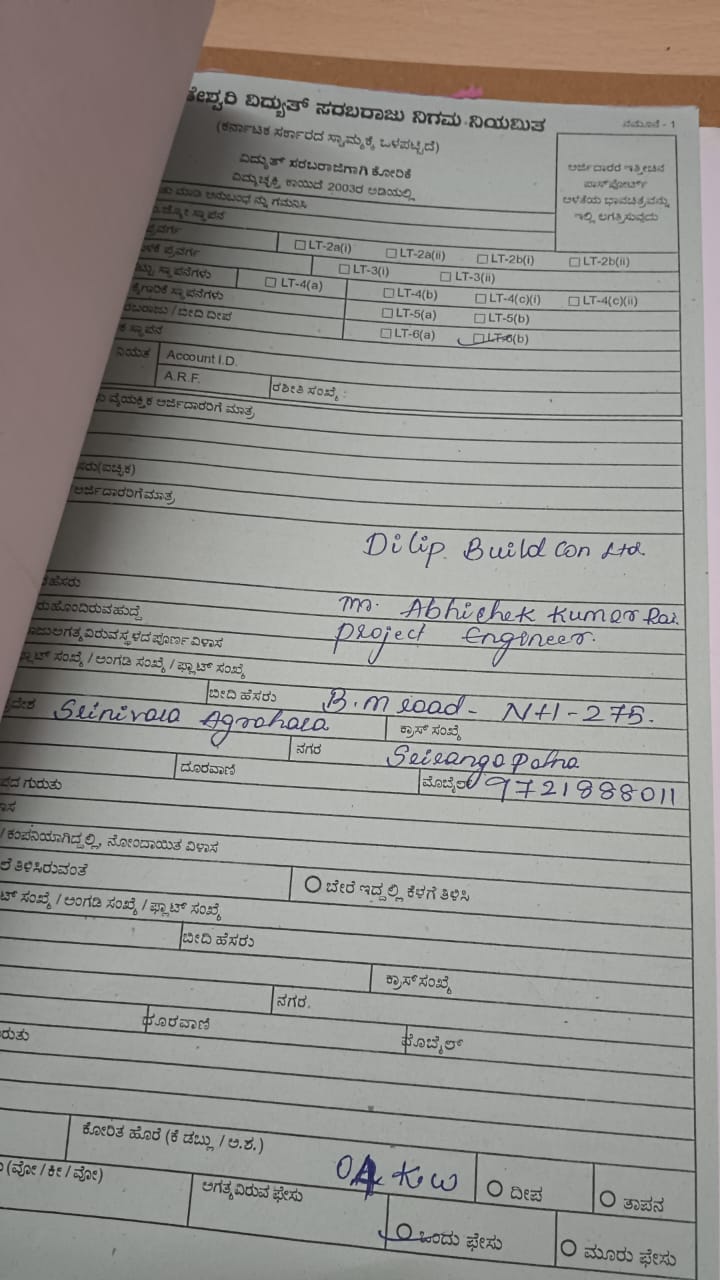 ವಿದ್ಯುತ್ ಸರಬರಾಜು ನಿಗಮ ನಿಯಮಿತ
ನಮೂನೆ - 1
(ಕರ್ನಾಟಕ ಸರ್ಕಾರದ ಸ್ವಾಮ್ಯಕ್ಕೆ ಒಳಪಟ್ಟಿದೆ)
ವಿದ್ಯುತ್ ಸರಬರಾಜಿಗಾಗಿ ಕೋರಿಕೆ
ವಿದ್ಯುಚ್ಛಕ್ತಿ ಕಾಯಿದೆ 2003ರ ಅಡಿಯಲ್ಲಿ
ಅರ್ಜಿದಾರರ ಇತ್ತೀಚಿನ
ಪಾಸ್‌ಪೋರ್ಟ್
ಅಳತೆಯ ಭಾವಚಿತ್ರವನ್ನು
ಇಲ್ಲಿ ಲಗತ್ತಿಸುವುದು
ಮಾಡಿ ಅನುಬಂಧ ನ್ನು ಗಮನಿಸಿ
ಸ್ಥಾಪನ
ಪ್ರವರ್ಗ LT-2a(i) LT-2a(ii) LT-2b(i) LT-2b(ii)
ಪ್ರವರ್ಗ LT-3(i) LT-3(ii)
ಸ್ಥಾಪನೆಗಳು LT-4(a) LT-4(b) LT-4(c)(i) LT-4(c)(ii)
ಸ್ಥಾಪನೆಗಳು LT-5(a) LT-5(b)
/ ಬೀದಿ ದೀಪ LT-6(a) LT-6(b)
ಸ್ಥಾಪನ
Account I.D.
A.R.F. ರಶೀತಿ ಸಂಖ್ಯೆ :
ವೈಯಕ್ತಿಕ ಅರ್ಜಿದಾರರಿಗೆ ಮಾತ್ರ
(ಐಚ್ಛಿಕ)
ಅರ್ಜಿದಾರರಿಗೆ ಮಾತ್ರ
Dilip. Build Con Ltd.
ಹೆಸರು
m. Abhichek Kumar Rai.
ಹೊಂದಿರುವ ಹುದ್ದೆ
Project Engineer.
ಅಗತ್ಯವಿರುವ ಸ್ಥಳದ ಪೂರ್ಣ ವಿಳಾಸ
ಸಂಖ್ಯೆ / ಅಂಗಡಿ ಸಂಖ್ಯೆ / ಫ್ಲಾಟ್ ಸಂಖ್ಯೆ
ಬೀದಿ ಹೆಸರು B.M road - NH-275.
Srinivasa Agrahara ಕ್ರಾಸ್ ಸಂಖ್ಯೆ
ನಗರ Srirangapatna
ದೂರವಾಣಿ ಮೊಬೈಲ್ 9721888011
ಗುರುತು
/ ಕಂಪನಿಯಾಗಿದ್ದಲ್ಲಿ, ನೋಂದಾಯಿತ ವಿಳಾಸ
ತಿಳಿಸಿರುವಂತೆ ಬೇರೆ ಇದ್ದಲ್ಲಿ ಕೆಳಗೆ ತಿಳಿಸಿ
ಸಂಖ್ಯೆ / ಅಂಗಡಿ ಸಂಖ್ಯೆ / ಫ್ಲಾಟ್ ಸಂಖ್ಯೆ
ಬೀದಿ ಹೆಸರು
ಕ್ರಾಸ್ ಸಂಖ್ಯೆ
ನಗರ.
ದೂರವಾಣಿ ಮೊಬೈಲ್
ಕೋರಿತ ಹೊರೆ (ಕೆ ಡಬ್ಲು / ಅ.ಶ.) 04 KW ದೀಪ ತಾಪನ
(ವೋ / ಕೀ / ವೋ) ಅಗತ್ಯವಿರುವ ಫೇಸು ಒಂದು ಫೇಸು ಮೂರು ಫೇಸು